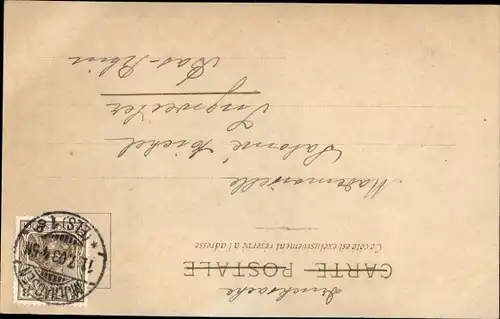 Drucksache
CARTE POSTALE
Ce côté est exclusivement réservé à l'adresse
MÜLHAUSEN
(ELS) 1
Mademoiselle
Salomé Bickel
Ingweiler
Bas-Rhin